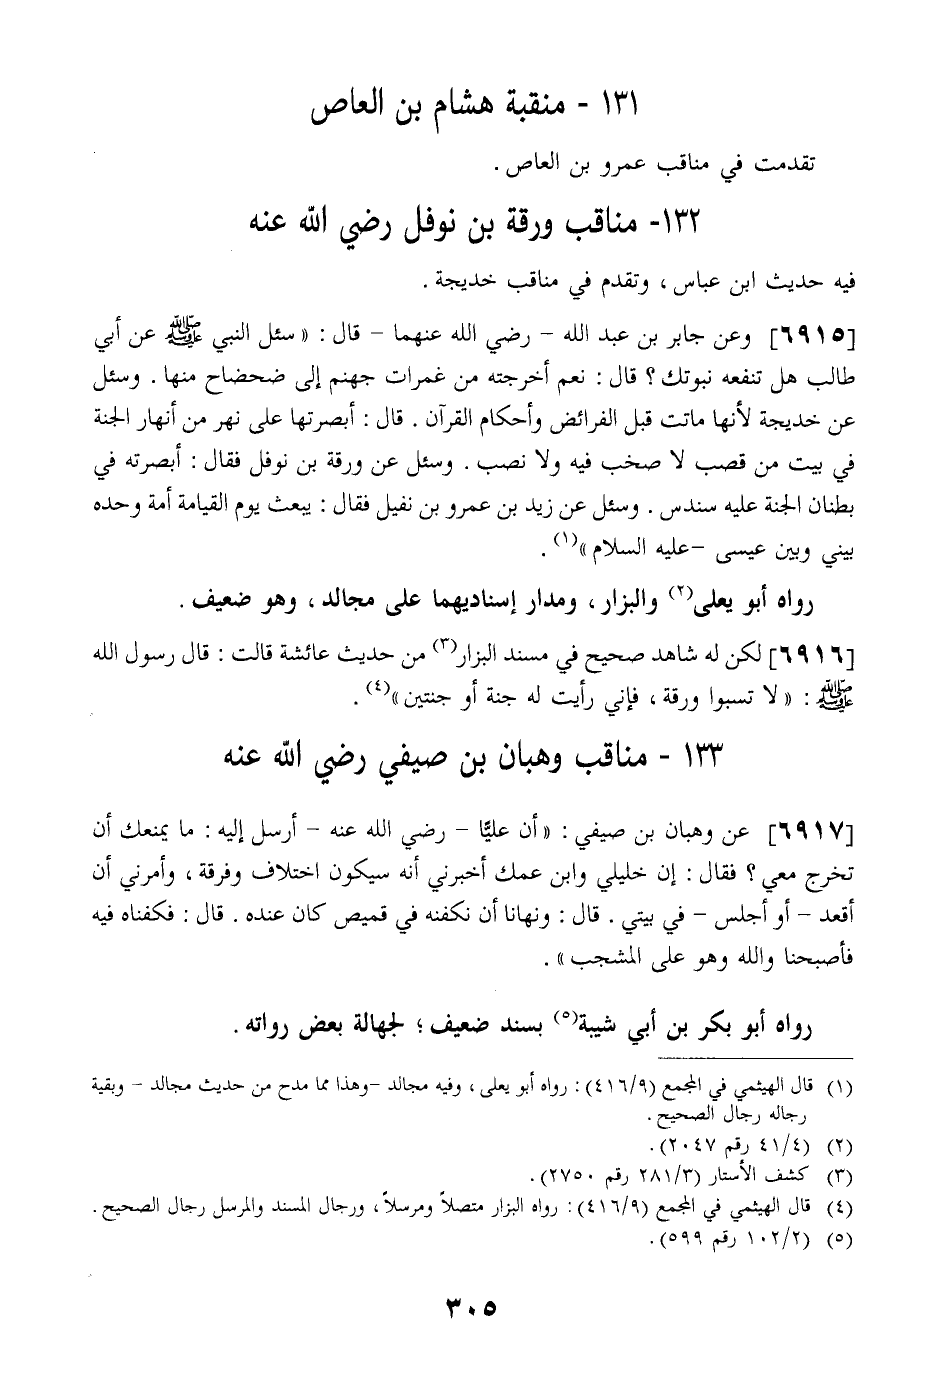 ١٣١ - منقبة هشام بن العاص
تقدمت في مناقب عمرو بن العاص .
١٣٢- مناقب ورقة بن نوفل رضي الله عنه
فيه حديث ابن عباس ، وتقدم في مناقب خديجة .
[٦٩١٥] وعن جابر بن عبد الله – رضي الله عنهما – قال : « سئل النبي ﷺ عن أبي
طالب هل تنفعه نبوتك ؟ قال : نعم أخرجته من غمرات جهنم إلى ضحضاح منها . وسئل
عن خديجة لأنها ماتت قبل الفرائض وأحكام القرآن . قال : أبصرتها على نهر من أنهار الجنة
في بيت من قصب لا صخب فيه ولا نصب . وسئل عن ورقة بن نوفل فقال : أبصرته في
بطنان الجنة عليه سندس . وسئل عن زيد بن عمرو بن نفيل فقال : يبعث يوم القيامة أمة وحده
بيني وبين عيسى –عليه السلام »(١) .
رواه أبو يعلى(٢) والبزار ، ومدار إسناديهما على مجالد ، وهو ضعيف .
[٦٩١٦] لكن له شاهد صحيح في مسند البزار(٣) من حديث عائشة قالت : قال رسول الله
ﷺ : « لا تسبوا ورقة ، فإني رأيت له جنة أو جنتين »(٤) .
١٣٣ - مناقب وهبان بن صيفي رضي الله عنه
[٦٩١٧] عن وهبان بن صيفي : « أن عليًّا – رضي الله عنه – أرسل إليه : ما يمنعك أن
تخرج معي ؟ فقال : إن خليلي وابن عمك أخبرني أنه سيكون اختلاف وفرقة ، وأمرني أن
أقعد – أو أجلس – في بيتي . قال : ونهانا أن نكفنه في قميص كان عنده . قال : فكفناه فيه
فأصبحنا والله وهو على المشجب » .
رواه أبو بكر بن أبي شيبة(٥) بسند ضعيف ؛ لجهالة بعض رواته .
(١) قال الهيثمي في المجمع (٤١٦/٩) : رواه أبو يعلى ، وفيه مجالد –وهذا مما مدح من حديث مجالد – وبقية
رجاله رجال الصحيح .
(٢) (٤١/٤ رقم ٢٠٤٧) .
(٣) كشف الأستار (٢٨١/٣ رقم ٢٧٥٠) .
(٤) قال الهيثمي في المجمع (٤١٦/٩) : رواه البزار متصلاً ومرسلاً ، ورجال المسند والمرسل رجال الصحيح .
(٥) (١٠٢/٢ رقم ٥٩٩) .
٣٠٥